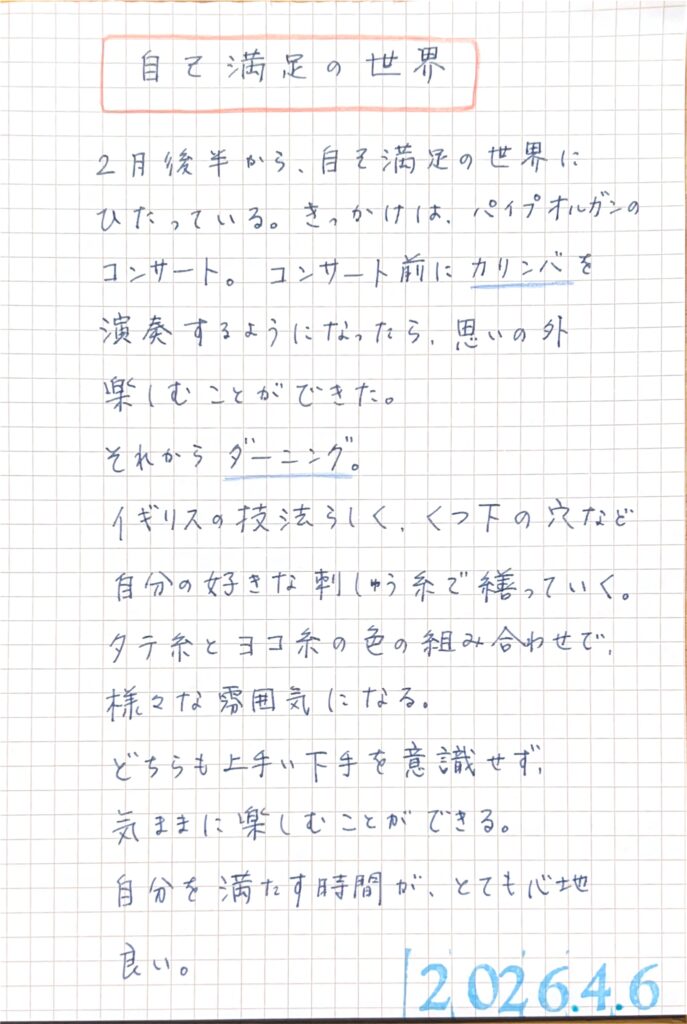 自己満足の世界
2月後半から、自己満足の世界に
ひたっている。きっかけは、パイプオルガンの
コンサート。コンサート前にカリンバを
演奏するようになったら、思いの外
楽しむことができた。
それからダーニング。
イギリスの技法らしく、くつ下の穴など
自分の好きな刺しゅう糸で繕っていく。
タテ糸とヨコ糸の色の組み合わせで、
様々な雰囲気になる。
どちらも上手い下手を意識せず、
気ままに楽しむことができる。
自分を満たす時間が、とても心地
良い。
2026.4.6